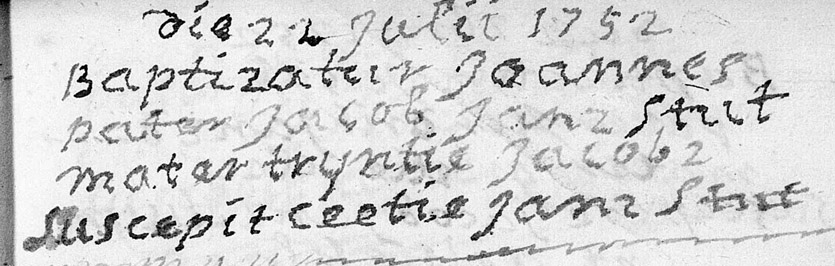 die 22 Julii 1752
Baptizatur Joannes
pater Jacob Janz Stut
mater tryntie Jacobz
Suscepit ceetie Janz Stut